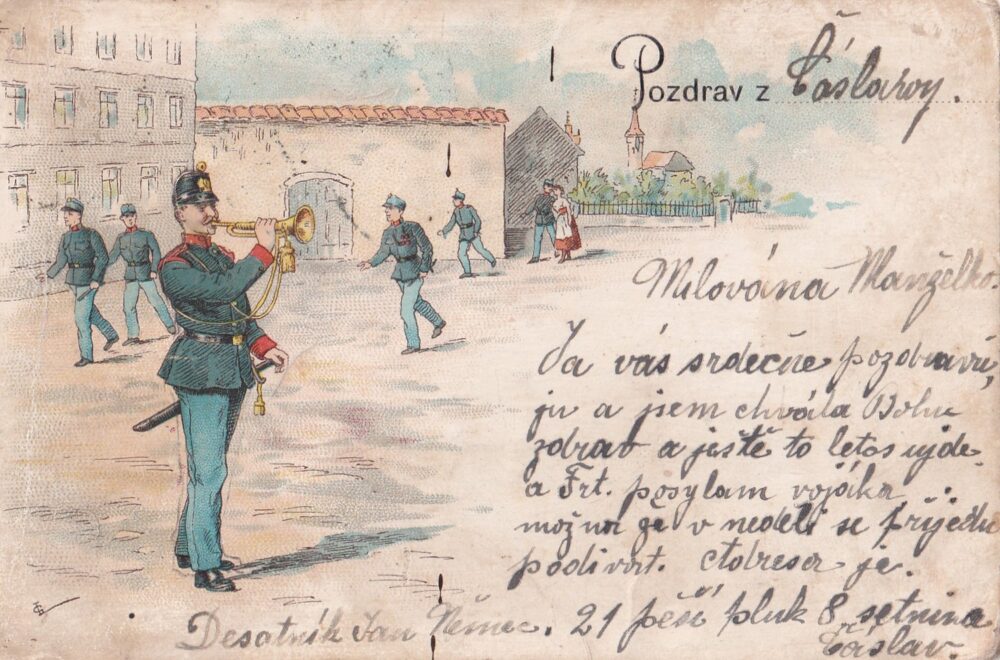 Pozdrav z Čáslavy.
Milována Manželko.
Ja vás srdečne pozdravu,
ju a jsem chvála Bohu
zdrav a ještě to letos ujde.
a Frt. posylam vojáka
možna že v neděli se přijedu
podivat. Adresa je.
Desatník Jan Němec. 21 pěší pluk 8. setnina
Čáslav.